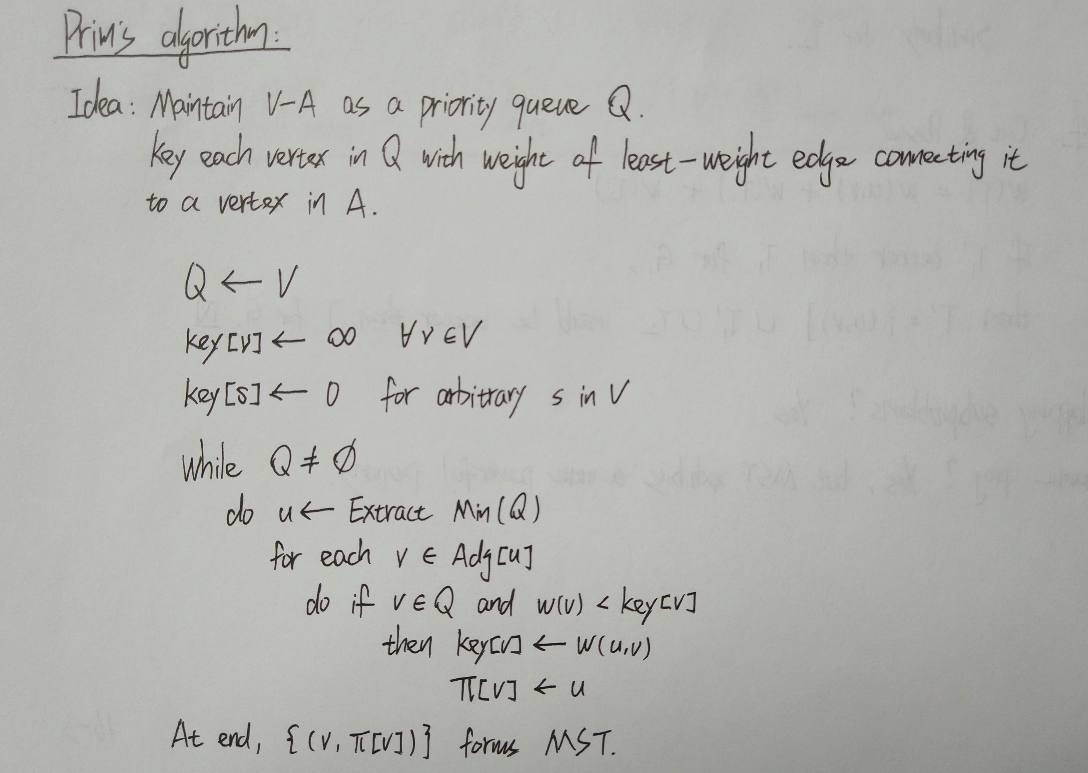 Prim's algorithm:
Idea: Maintain V-A as a priority queue Q.
key each vertex in Q with weight of least-weight edge connecting it
to a vertex in A.
Q ← V
key[v] ← ∞ ∀v∈V
key[s] ← 0 for arbitrary s in V
While Q ≠ ∅
do u ← Extract Min(Q)
for each v ∈ Adg[u]
do if v∈Q and w(v) < key[v]
then key[v] ← w(u,v)
π[v] ← u
At end, {(v, π[v])} forms MST.